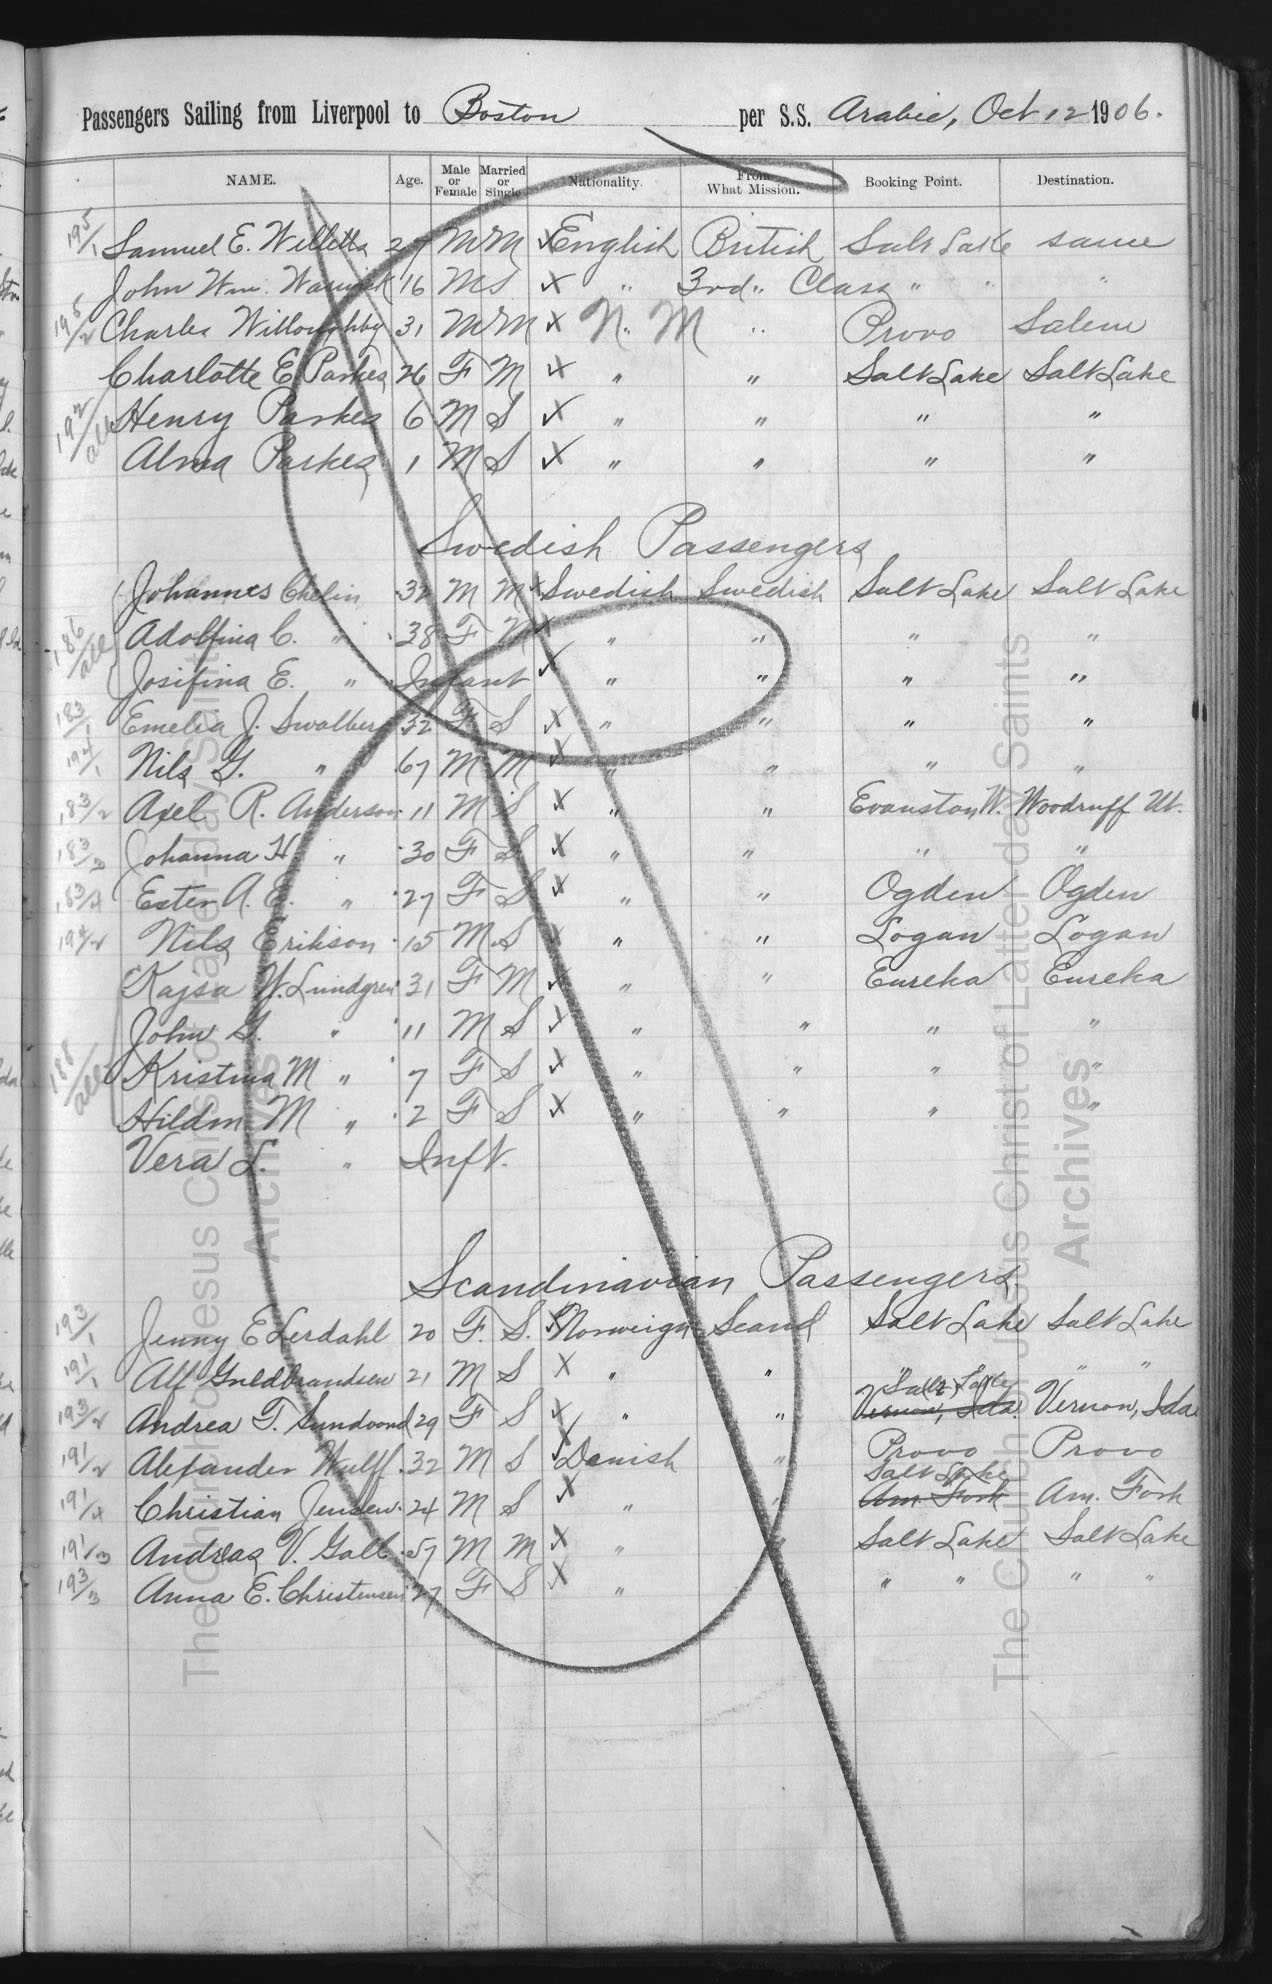 Passengers Sailing from Liverpool to Boston per S.S. Arabic, Oct 12 1906.
NAME. Age. Male or Female Married or Single Nationality. From What Mission. Booking Point. Destination.
195/1 Samuel E. Willetts 27 M M X English British Salt Lake same
John Wm. Warwick 16 M S X " 3rd " Class " " "
195/2 Charles Willoughby 31 M M X N. M " Provo Salem
Charlotte E. Parkes 26 F M X " " Salt Lake Salt Lake
192/all Henry Parkes 6 M S X " " " "
Alma Parkes 1 M S X " " " "
Swedish Passengers
Johannes Chelin 32 M M X Swedish Swedish Salt Lake Salt Lake
186/all Adolfina C. " 38 F M X " " " "
Josifina E. " Infant X " " " "
183/1 Emelia J. Swalberg 32 F S X " " " "
194/1 Nils G. " 67 M M X " " " "
183/2 Axel R. Anderson 11 M S X " " Evanston, W. Woodruff Ut.
183/3 Johanna H. " 30 F S X " " " "
183/4 Ester A. E. " 27 F S X " " Ogden Ogden
194/2 Nils Erikson 15 M S X " " Logan Logan
Kajsa W. Lundgren 31 F M X " " Eureka Eureka
John G. " 11 M S X " " " "
188/all Kristina M " 7 F S X " " " "
Hildm M " 2 F S X " " " "
Vera L. " Inft.
Scandinavian Passengers.
193/1 Jenny E Lerdahl 20 F. S. X Norweign Scand Salt Lake Salt Lake
191/1 Alf Guldbrandsen 21 M S X " " " " "
Salt Lake
193/2 Andrea T. Sundvond 29 F S X " " Vernon, Ida. Vernon, Ida
191/2 Alexander Wulff 32 M S X Danish " Provo Provo
Salt Lake
191/4 Christian Jensen 24 M S X " " Am. Fork Am. Fork
191/3 Andreas V. Gall 57 M M X " " Salt Lake Salt Lake
193/3 Anna E. Christensen 27 F S X " " " " "
The Church of Jesus Christ of Latter-day Saints
Archives
The Church of Jesus Christ of Latter-day Saints
Archives